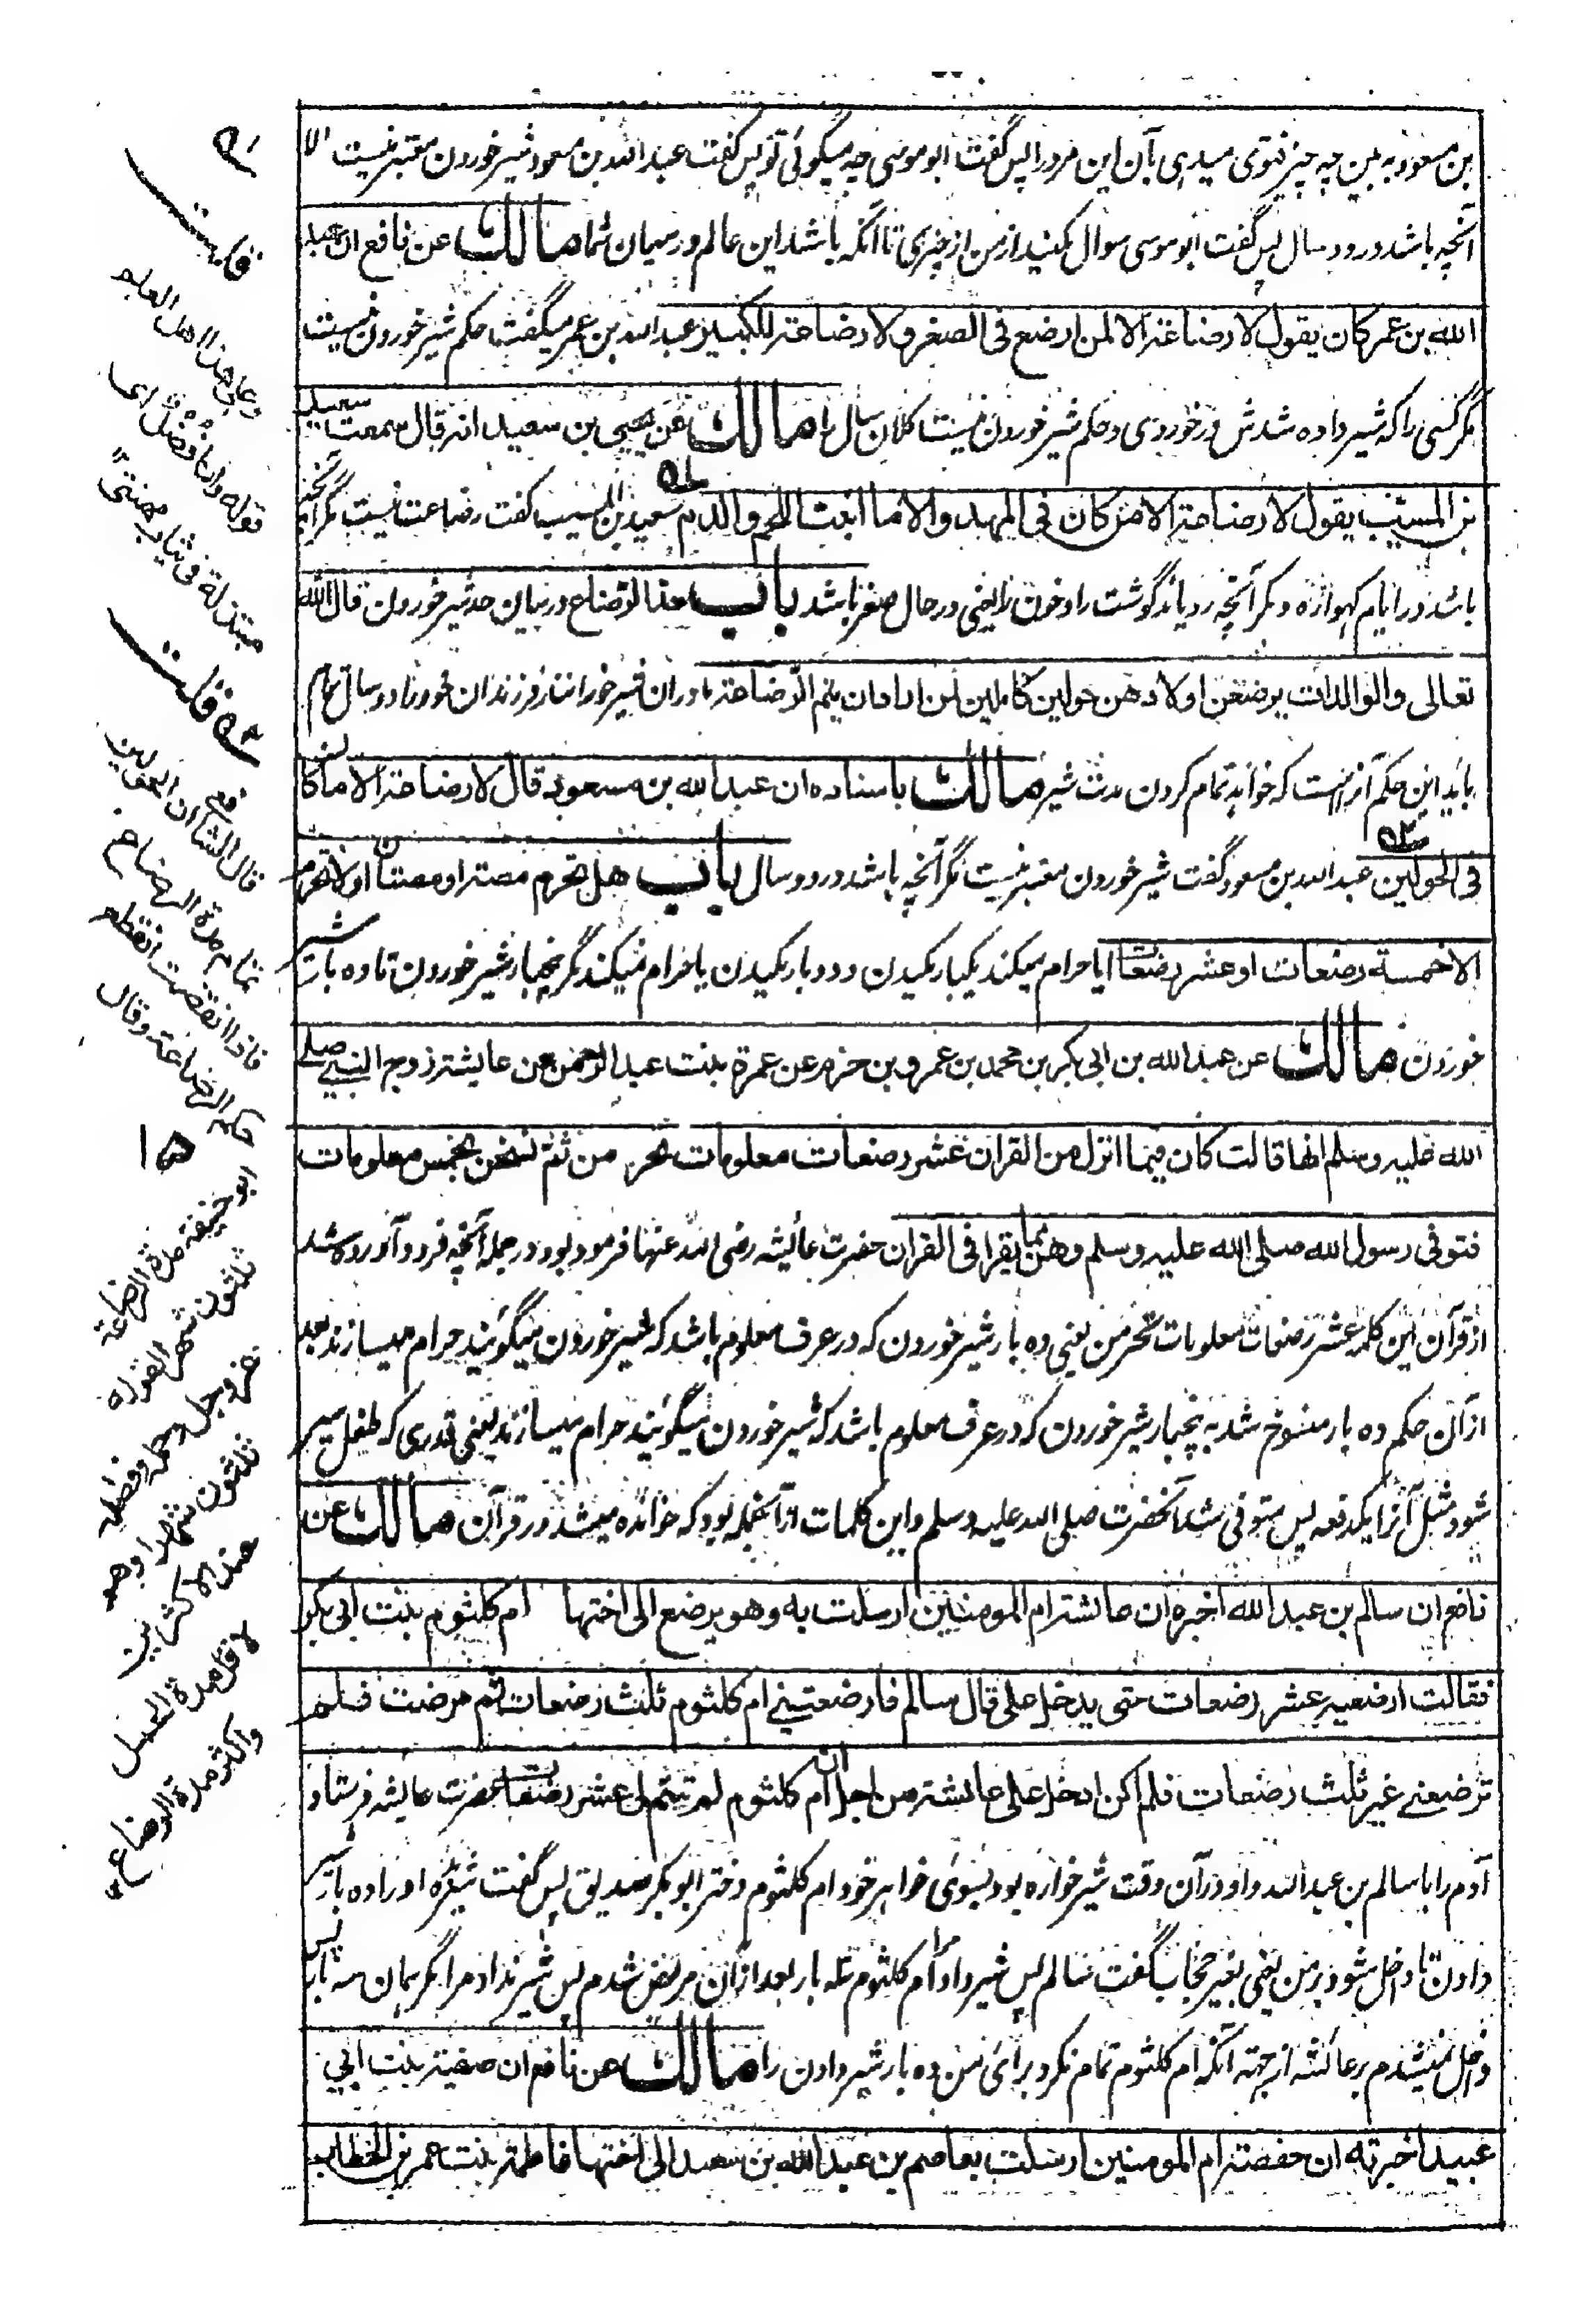 بن مسعود به بین چه چیز فتوی میدهی بآن این مرد را پس گفت ابو موسی چه میگوئی تو پس گفت عبد الله بن مسعود شیر خوردن معتبر نیست الا
آنچه باشد در دو سال پس گفت ابو موسی سوال مکنید از من از چیزی تا آنکه باشد این عالم در میان شما مالك عن نافع ان عبد
الله بن عمر كان يقول لا رضاعة الا لمن ارضع فى الصغر و لا رضاعة للكبير عبد الله بن عمر میگفت حکم شیر خوردن نیست
مگر کسی را که شیر داده شدش در خوردی و حکم شیر خوردن نیست کلان سال را مالك عن يحيى بن سعيد انه قال سمعت سعيد
بن المسيب يقول لا رضاعة الا من كان فى المهد والا ما انبت اللحم والدم سعید بن المسیب گفت رضاعت نیست مگر آنچه
باشد در ایام گهواره و مگر آنچه رویاند گوشت را و خون را یعنی در حال صغر باشد باب هذا الرضاع در بیان حد شیر خوردن قال الله
تعالى والوالدات يرضعن اولادهن حولين كاملين لمن اراد ان يتم الرضاعة مادران شیر خورانند فرزندان خود را دو سال تمام
باید این حکم آنراست که خواهد تمام کردن مدت شیر مالك باسناده ان عبد الله بن مسعود قال لا رضاعة الا ما كان
فى الحولين عبد الله بن مسعود گفت شیر خوردن معتبر نیست مگر آنچه باشد در دو سال باب هل تحرم مصة او مصتان او لا تحرم
الا خمسة رضعات او عشر رضعات ایا حرام میکند یکبار مکیدن و دو بار مکیدن یا حرام نمیکند مگر پنجبار شیر خوردن تا ده بار شیر
خوردن مالك عن عبد الله بن ابى بكر بن محمد بن عمرو بن حزم عن عمرة بنت عبد الرحمن عن عايشة زوج النبي صلى
الله عليه وسلم انها قالت كان فيما انزل من القران عشر رضعات معلومات تحرمن ثم نسخن بخمس معلومات
فتوفى رسول الله صلى الله عليه وسلم وهن مما يقرا فى القران حضرت عائشه رضی الله عنها فرموده بود در جمله آنچه فرود آورده شد
از قرآن این کلمه عشر رضعات معلومات تحرمن یعنی ده بار شیر خوردن که در عرف معلوم باشد که شیر خوردن میگویند حرام میسازند بعد
از آن حکم ده بار منسوخ شد به پنجبار شیر خوردن که در عرف معلوم باشد که شیر خوردن میگویند حرام میسازند یعنی قدری که طفل سیر
شود مثل آنرا یکدفعه پس متوفی شد آنحضرت صلی الله علیه وسلم و این کلمات از آنجمله بود که خوانده میشد در قرآن مالك عن
نافع ان سالم بن عبد الله اخبره ان عائشة ام المومنين ارسلت به وهو يرضع الى اختها ام كلثوم بنت ابى بكر
فقالت ارضعيه عشر رضعات حتى يدخل على قال سالم فارضعتنى ام كلثوم ثلث رضعات ثم مرضت فلم
ترضعنى غير ثلث رضعات فلم اكن ادخل على عائشة من اجل ان ام كلثوم لم تتم لى عشر رضعات حضرت عایشه فرستاد
آدم را با سالم بن عبد الله و او در آن وقت شیر خواره بود بسوی خواهر خود ام کلثوم دختر ابو بکر صدیق پس گفت شیر ده او را ده بار شیر
دادن تا داخل شود بر من یعنی بغیر حجاب گفت سالم پس شیر داد مرا ام کلثوم سه بار بعد از آن مریض شدم پس شیر نداد مرا مگر همان سه بار پس
داخل نمیشدم بر عائشه از جهة آنکه ام کلثوم تمام نکرد برای من ده بار شیر دادن را مالك عن نافع ان صفية بنت ابى
عبيد اخبرته ان حفصة ام المومنين ارسلت بعاصم بن عبد الله بن سعد الى اختها فاطمة بنت عمر بن الخطاب
قلت
وعلى هذا اهل العلم
قوله وانا فضل اى
مبتذلة فى ثياب مهنتى
قلت
قال الشافعى ان الحولين
تمام مدة الرضاع
فاذا انقضت انقطع
حكم الرضاعة وقال
ابو حنيفة مدة الرضاعة
ثلثون شهرا لقوله
عز وجل وحمله وفصاله
ثلثون شهرا وهو
عند الاكثرين
لاقل مدة الحمل
واكثر مدة الرضاع